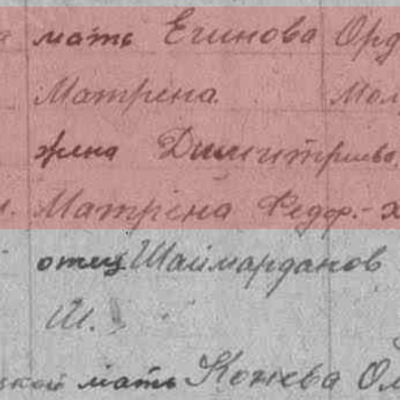 мать Егинова Орд
Матрена Мол
жена Димитриева
Матрена Федор.-
отец Шаймарданов
Ш.
мать Конева